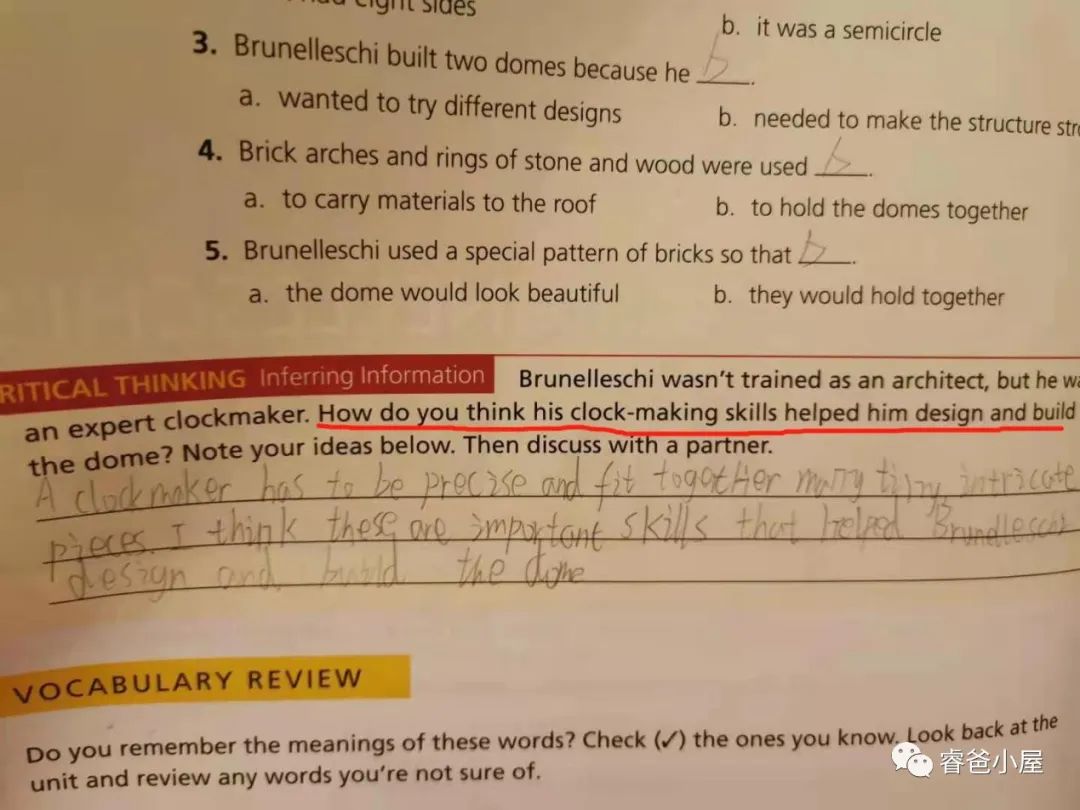 had eight sides
b. it was a semicircle
3. Brunelleschi built two domes because he b.
a. wanted to try different designs
b. needed to make the structure str
4. Brick arches and rings of stone and wood were used b.
a. to carry materials to the roof
b. to hold the domes together
5. Brunelleschi used a special pattern of bricks so that b.
a. the dome would look beautiful
b. they would hold together
RITICAL THINKING Inferring Information Brunelleschi wasn't trained as an architect, but he wa
an expert clockmaker. How do you think his clock-making skills helped him design and build
the dome? Note your ideas below. Then discuss with a partner.
A clockmaker has to be precise and fit together many tiny, intricate
pieces. I think these are important skills that helped Brundleschi
design and build the dome
VOCABULARY REVIEW
Do you remember the meanings of these words? Check (✓) the ones you know. Look back at the
unit and review any words you're not sure of.
睿爸小屋